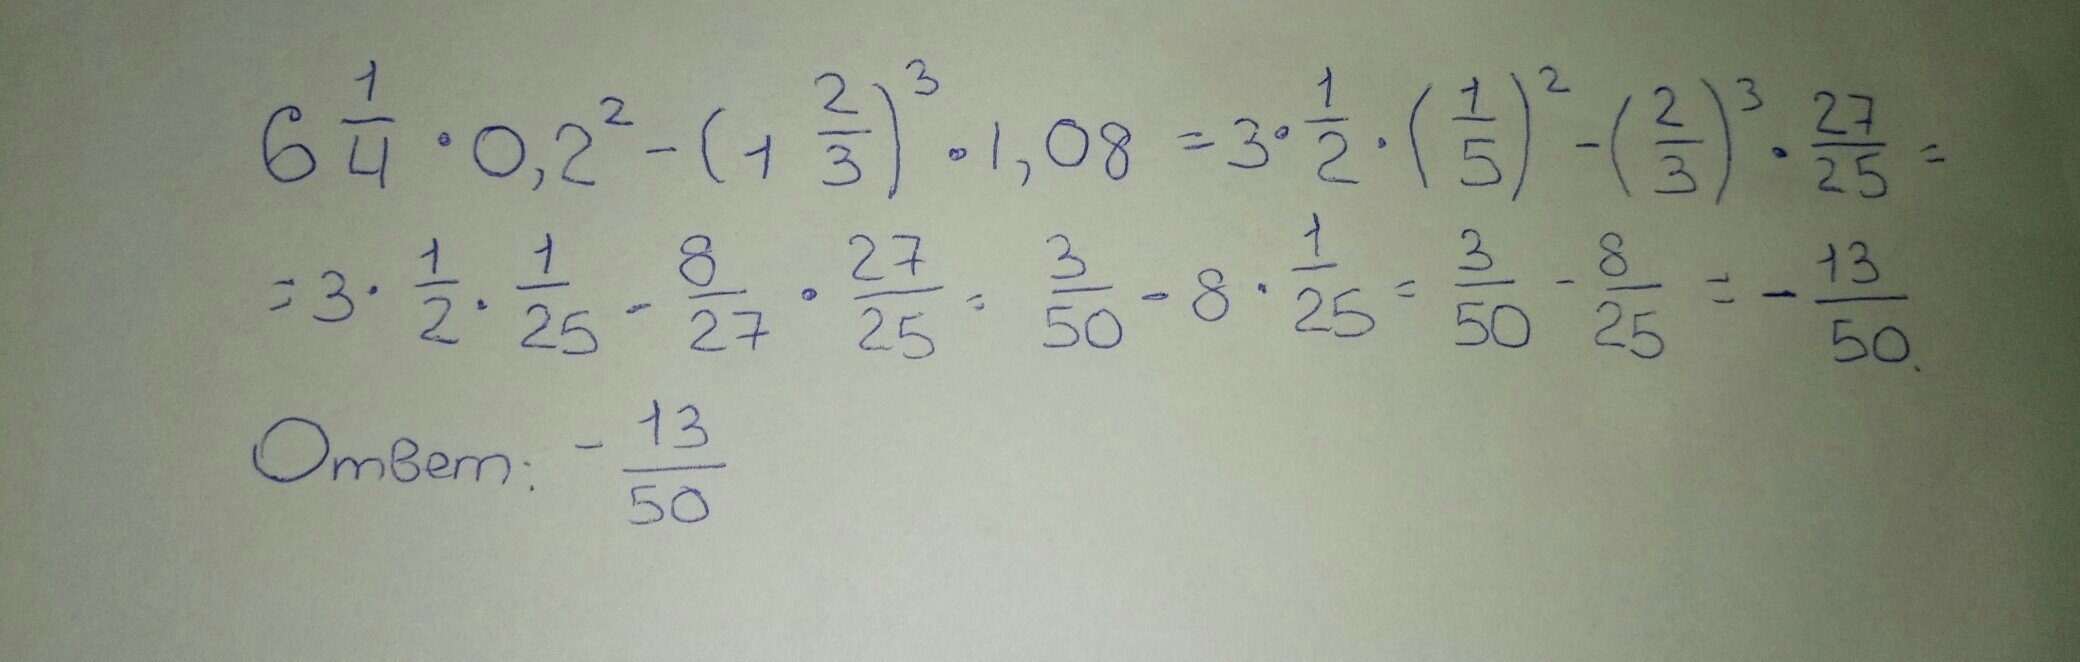 6 1/4 · 0,2² - (1 2/3)³ · 1,08 = 3 · 1/2 · (1/5)² - (2/3)³ · 27/25 =
= 3 · 1/2 · 1/25 - 8/27 · 27/25 = 3/50 - 8 · 1/25 = 3/50 - 8/25 = - 13/50.
Ответ: - 13/50